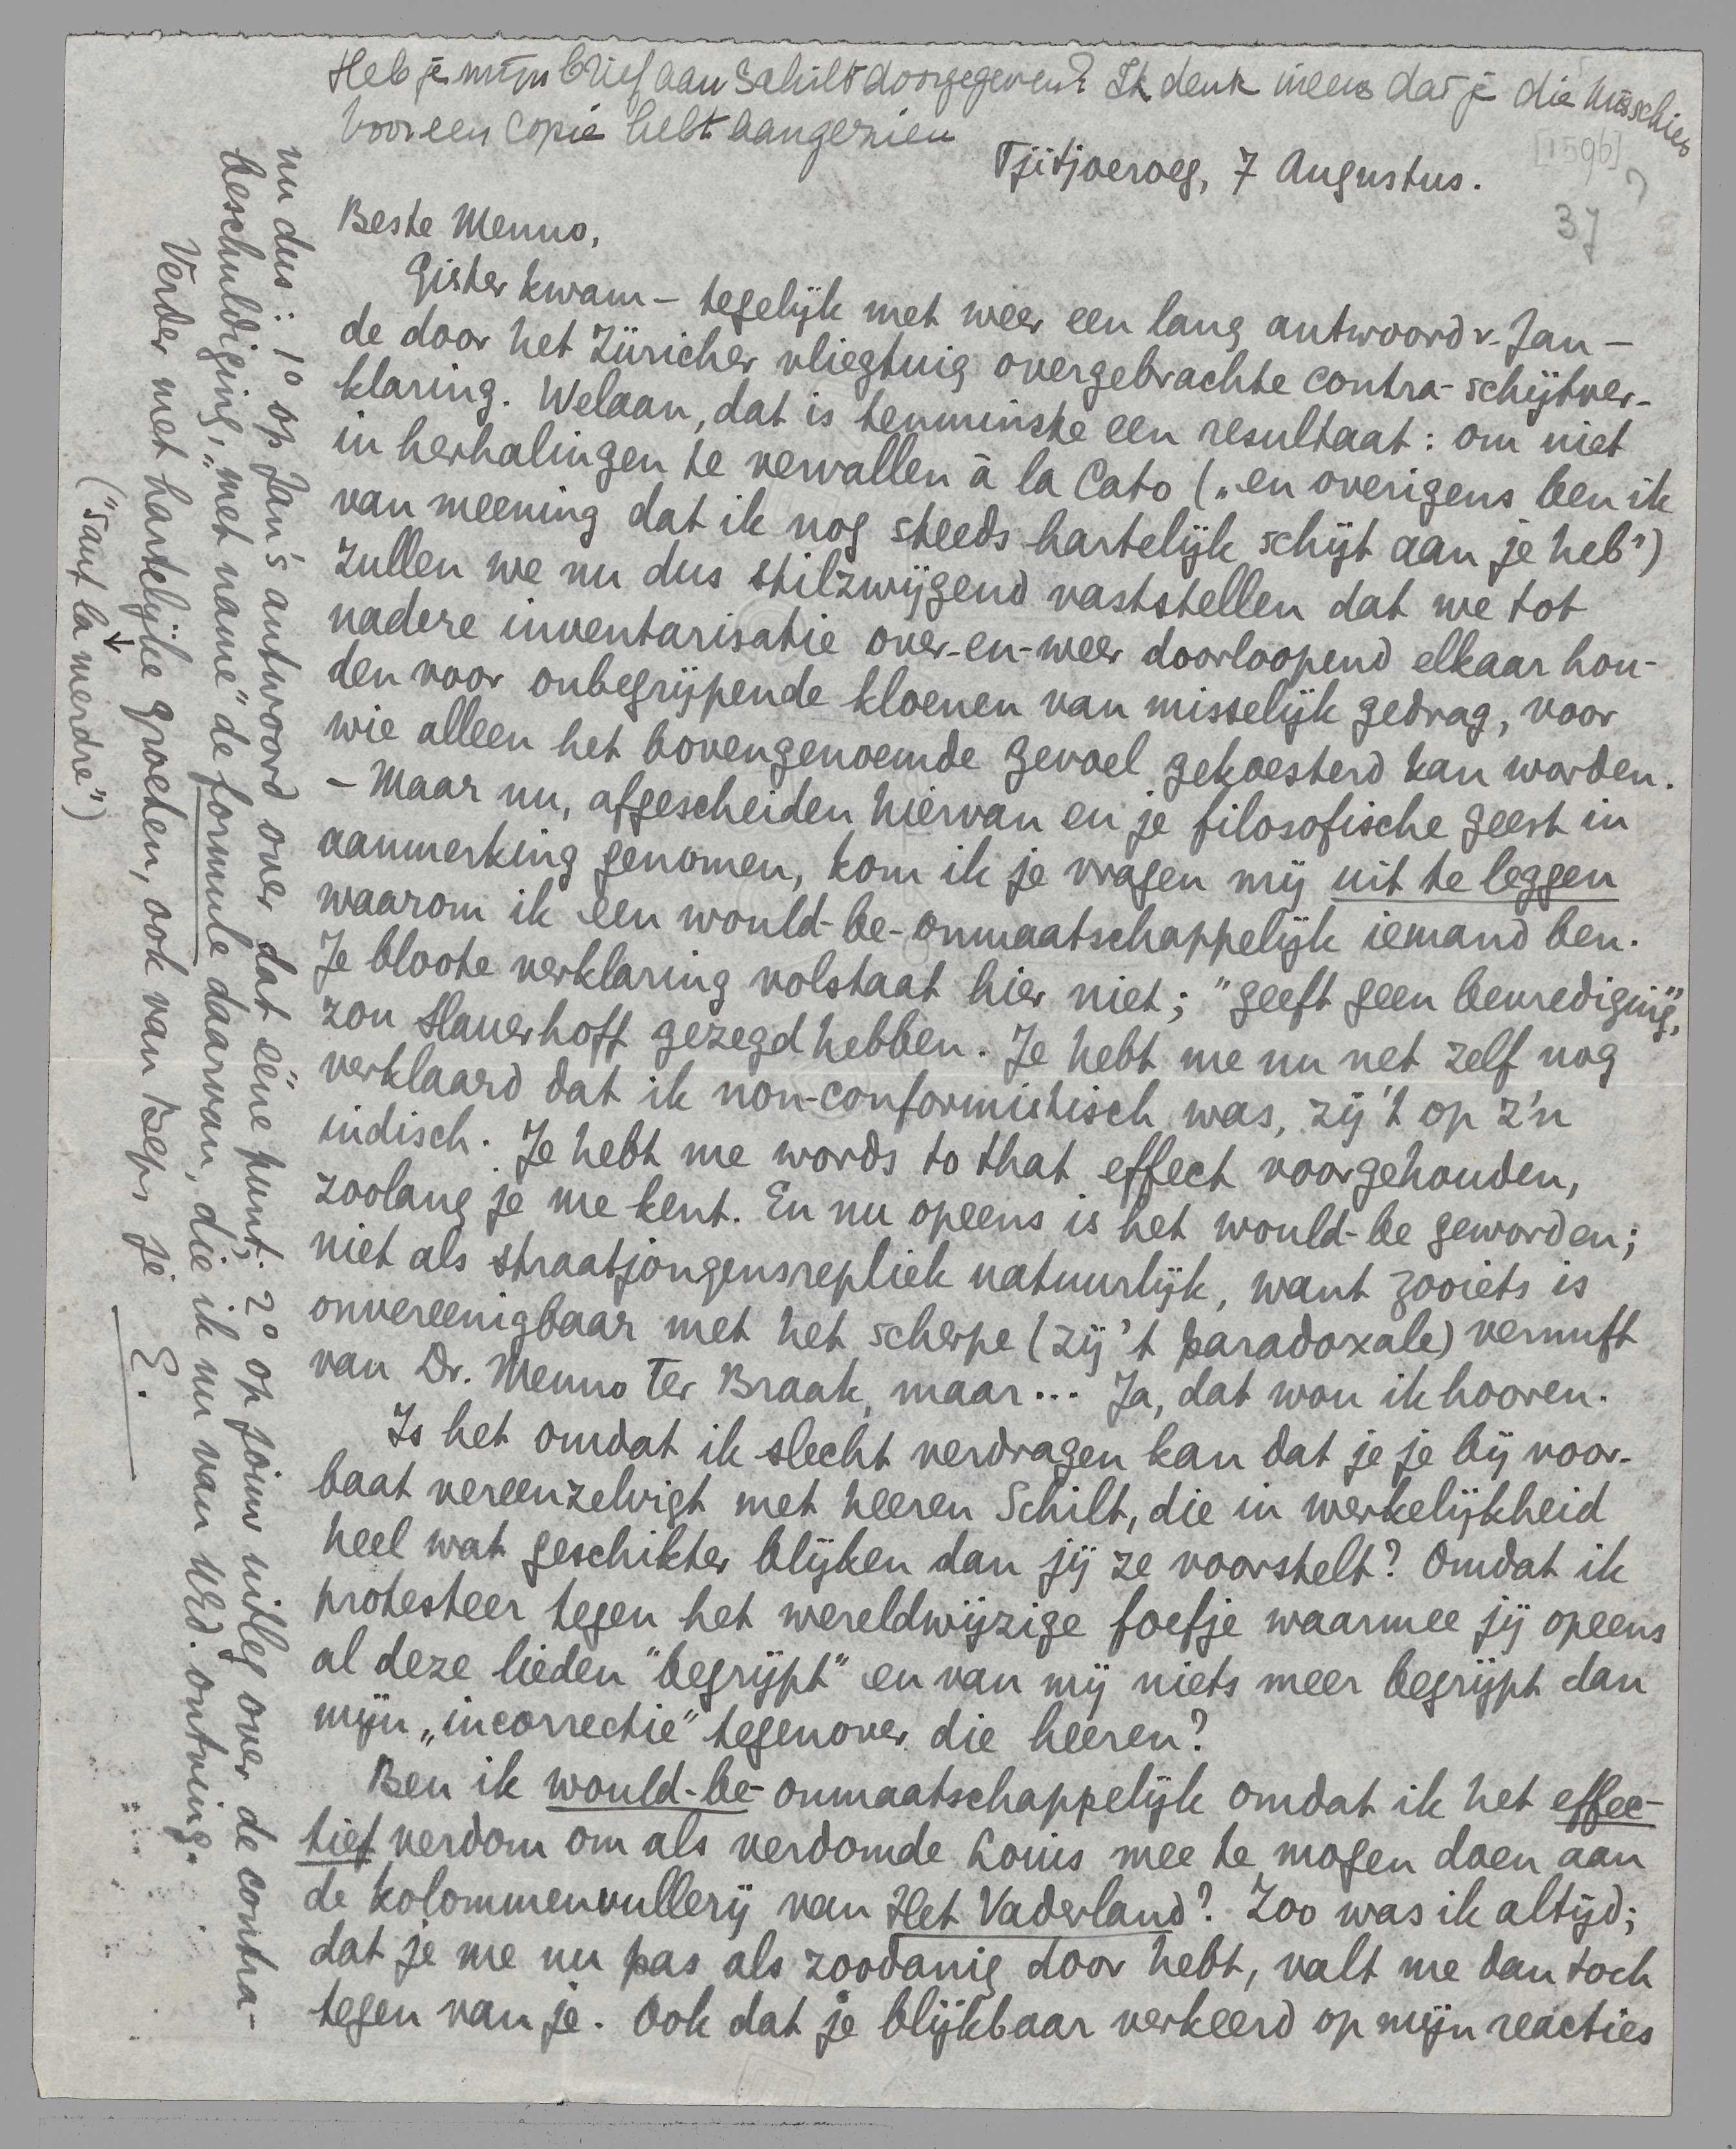 Heb je mijn brief aan Schilt doorgegeven? Ik denk ineens dat je die misschien
voor een copie hebt aangezien
[1596]
?
37
Tjitjoeroeg, 7 Augustus.
Beste Menno,
Gister kwam – tegelijk met weer een lang antwoord v. Jan –
de door het Züricher vliegtuig overgebrachte contra-schijtver-
klaring. Welaan, dat is tenminste een resultaat: om niet
in herhalingen te vervallen à la Cato („en overigens ben ik
van meening dat ik nog steeds hartelijk schijt aan je heb”)
zullen we nu dus stilzwijgend vaststellen dat we tot
nadere inventarisatie over-en-weer doorloopend elkaar hou-
den voor onbegrijpende kloenen van misselijk gedrag, voor
wie alleen het bovengenoemde gevoel gekoesterd kan worden.
– Maar nu, afgescheiden hiervan en je filosofische geest in
aanmerking genomen, kom ik je vragen mij uit te leggen
waarom ik een would-be-onmaatschappelijk iemand ben.
Je bloote verklaring volstaat hier niet; "geeft geen bevrediging",
zou Slauerhoff gezegd hebben. Je hebt me nu net zelf nog
verklaard dat ik non-conformistisch was, zij 't op z'n
indisch. Je hebt me words to that effect voorgehouden,
zoolang je me kent. En nu opeens is het would-be geworden;
niet als straatjongensrepliek natuurlijk, want zooiets is
onvereenigbaar met het scherpe (zij 't paradoxale) vernuft
van Dr. Menno Ter Braak, maar... Ja, dat wou ik hooren.
Is het omdat ik slecht verdragen kan dat je je bij voor-
baat vereenzelvigt met heeren Schilt, die in werkelijkheid
heel wat geschikter blijken dan jij ze voorstelt? Omdat ik
protesteer tegen het wereldwijzige foefje waarmee jij opeens
al deze lieden "begrijpt" en van mij niets meer begrijpt dan
mijn „incorrectie” tegenover die heeren?
Ben ik would-be-onmaatschappelijk omdat ik het effec-
tief verdom om als verdomde Louis mee te mogen doen aan
de kolommenvullerij van Het Vaderland? Zoo was ik altijd;
dat je me nu pas als zoodanig door hebt, valt me dan toch
tegen van je. Ook dat je blijkbaar verkeerd op mijn reacties
nu dus: 1° op Jan's antwoord over dat ééne punt; 2° op jouw uitleg over de contra-
beschuldiging, „met name” de formule daarvan, die ik nu van UEd. ontving.
Verder met hartelijke groeten, ook van Bep, je E.
("sauf la merdre")